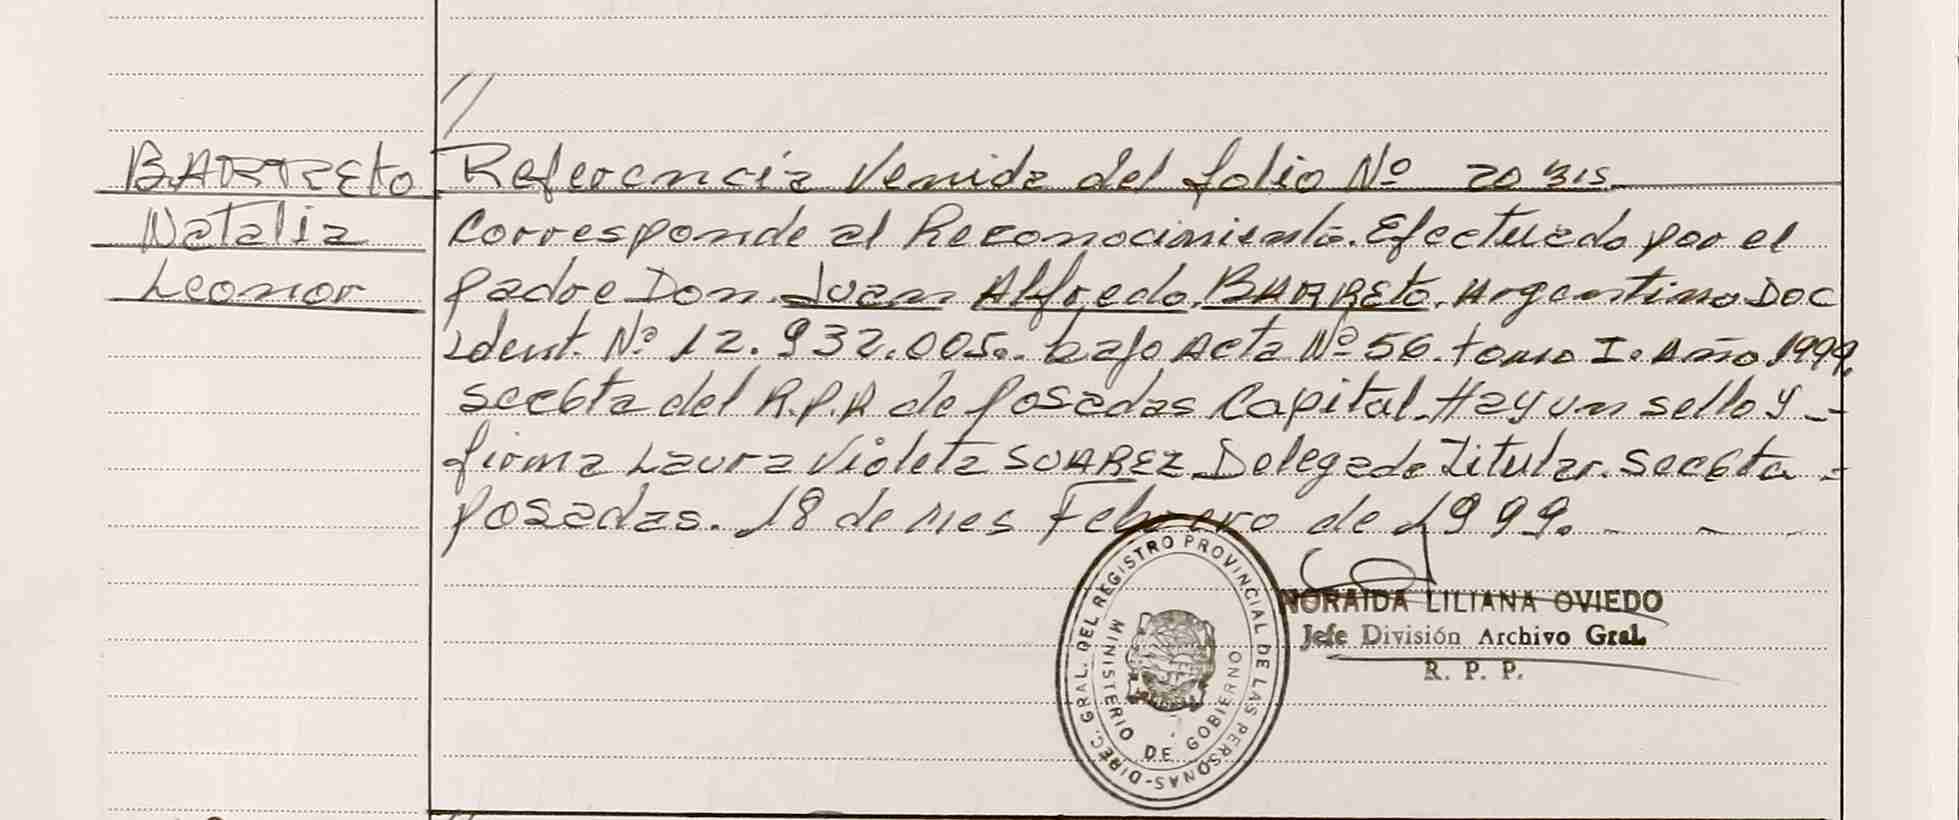 //
BARRETO
Natalia
Leonor
Referencia Venida del folio Nº 20 Bis.
Corresponde al Reconocimiento. Efectuado por el
padre Don. Juan Alfredo. BARRETO. Argentino Doc
Ident. Nº 12.932.005.. bajo Acta Nº 56. tomo I. Año 1999.
Secc 6ta del R.P.P. de Posadas Capital. Hay un sello y -
firma Laura Violeta SUAREZ. Delegada Titular. Secc 6ta -
Posadas. 18 de mes Febrero de 1999. - - -
DIREC. GRAL. DEL REGISTRO PROVINCIAL DE LAS PERSONAS-
MINISTERIO DE GOBIERNO
NORAIDA LILIANA OVIEDO
Jefe División Archivo Gral.
R. P. P.